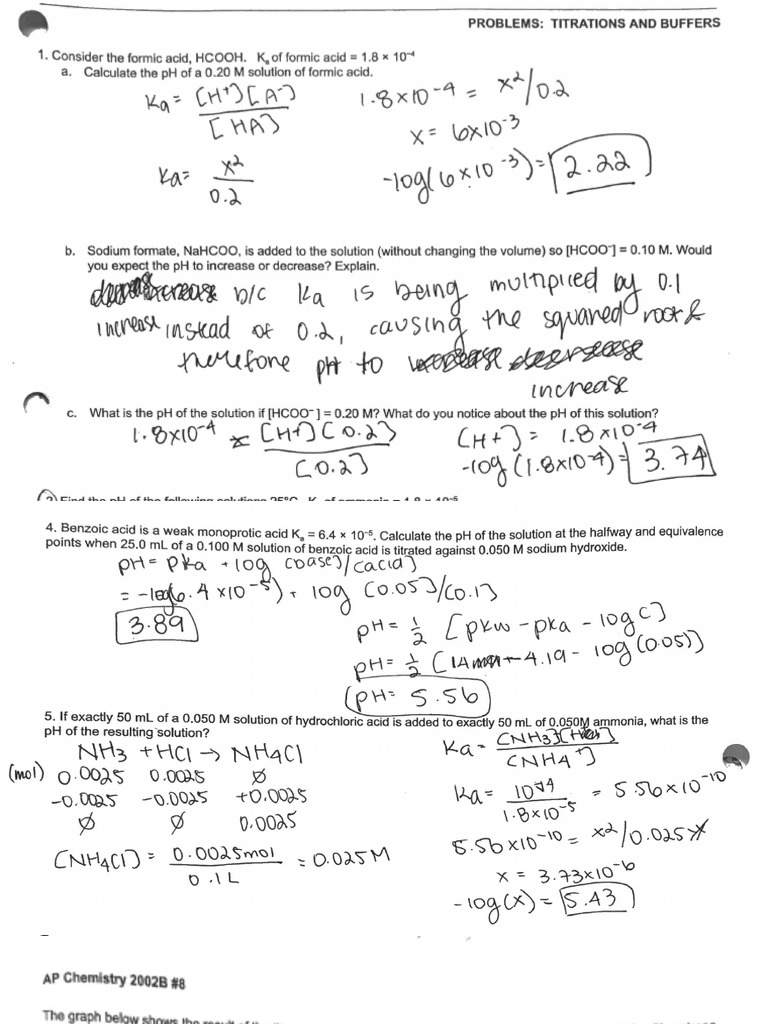 PROBLEMS: TITRATIONS AND BUFFERS
1. Consider the formic acid, HCOOH. Kₐ of formic acid = 1.8 × 10⁻⁴
a. Calculate the pH of a 0.20 M solution of formic acid.
Ka = [H+][A-]/[HA]
1.8×10-4 = x²/0.2
x = 6×10-3
Ka = x²/0.2
-log(6×10-3) = 2.22
b. Sodium formate, NaHCOO, is added to the solution (without changing the volume) so [HCOO⁻] = 0.10 M. Would
you expect the pH to increase or decrease? Explain.
b/c Ka is being multiplied by 0.1
increase instead of 0.2, causing the squared root &
therefore pH to
increase
c. What is the pH of the solution if [HCOO⁻] = 0.20 M? What do you notice about the pH of this solution?
1.8×10-4 = [H+][0.2]/[0.2]
[H+] = 1.8×10-4
-log(1.8×10-4) = 3.74
4. Benzoic acid is a weak monoprotic acid Kₐ = 6.4 × 10⁻⁵. Calculate the pH of the solution at the halfway and equivalence
points when 25.0 mL of a 0.100 M solution of benzoic acid is titrated against 0.050 M sodium hydroxide.
pH = pKa + log [base]/[acid]
= -log(6.4×10-5) + log [0.05]/[0.1]
3.89
pH = 1/2 [pKw - pKa - log C]
pH = 1/2 (14 - 4.19 - log(0.05)]
pH = 5.56
5. If exactly 50 mL of a 0.050 M solution of hydrochloric acid is added to exactly 50 mL of 0.050M ammonia, what is the
pH of the resulting solution?
NH3 + HCl → NH4Cl
(mol) 0.0025 0.0025 ∅
-0.0025 -0.0025 +0.0025
∅ ∅ 0.0025
[NH4Cl] = 0.0025mol/0.1L = 0.025M
Ka = [NH3]/[NH4+]
Ka = 10-14/1.8×10-5 = 5.56×10-10
5.56×10-10 = x²/0.025
x = 3.73×10-6
-log(x) = 5.43
AP Chemistry 2002B #8
The graph below shows the result of the